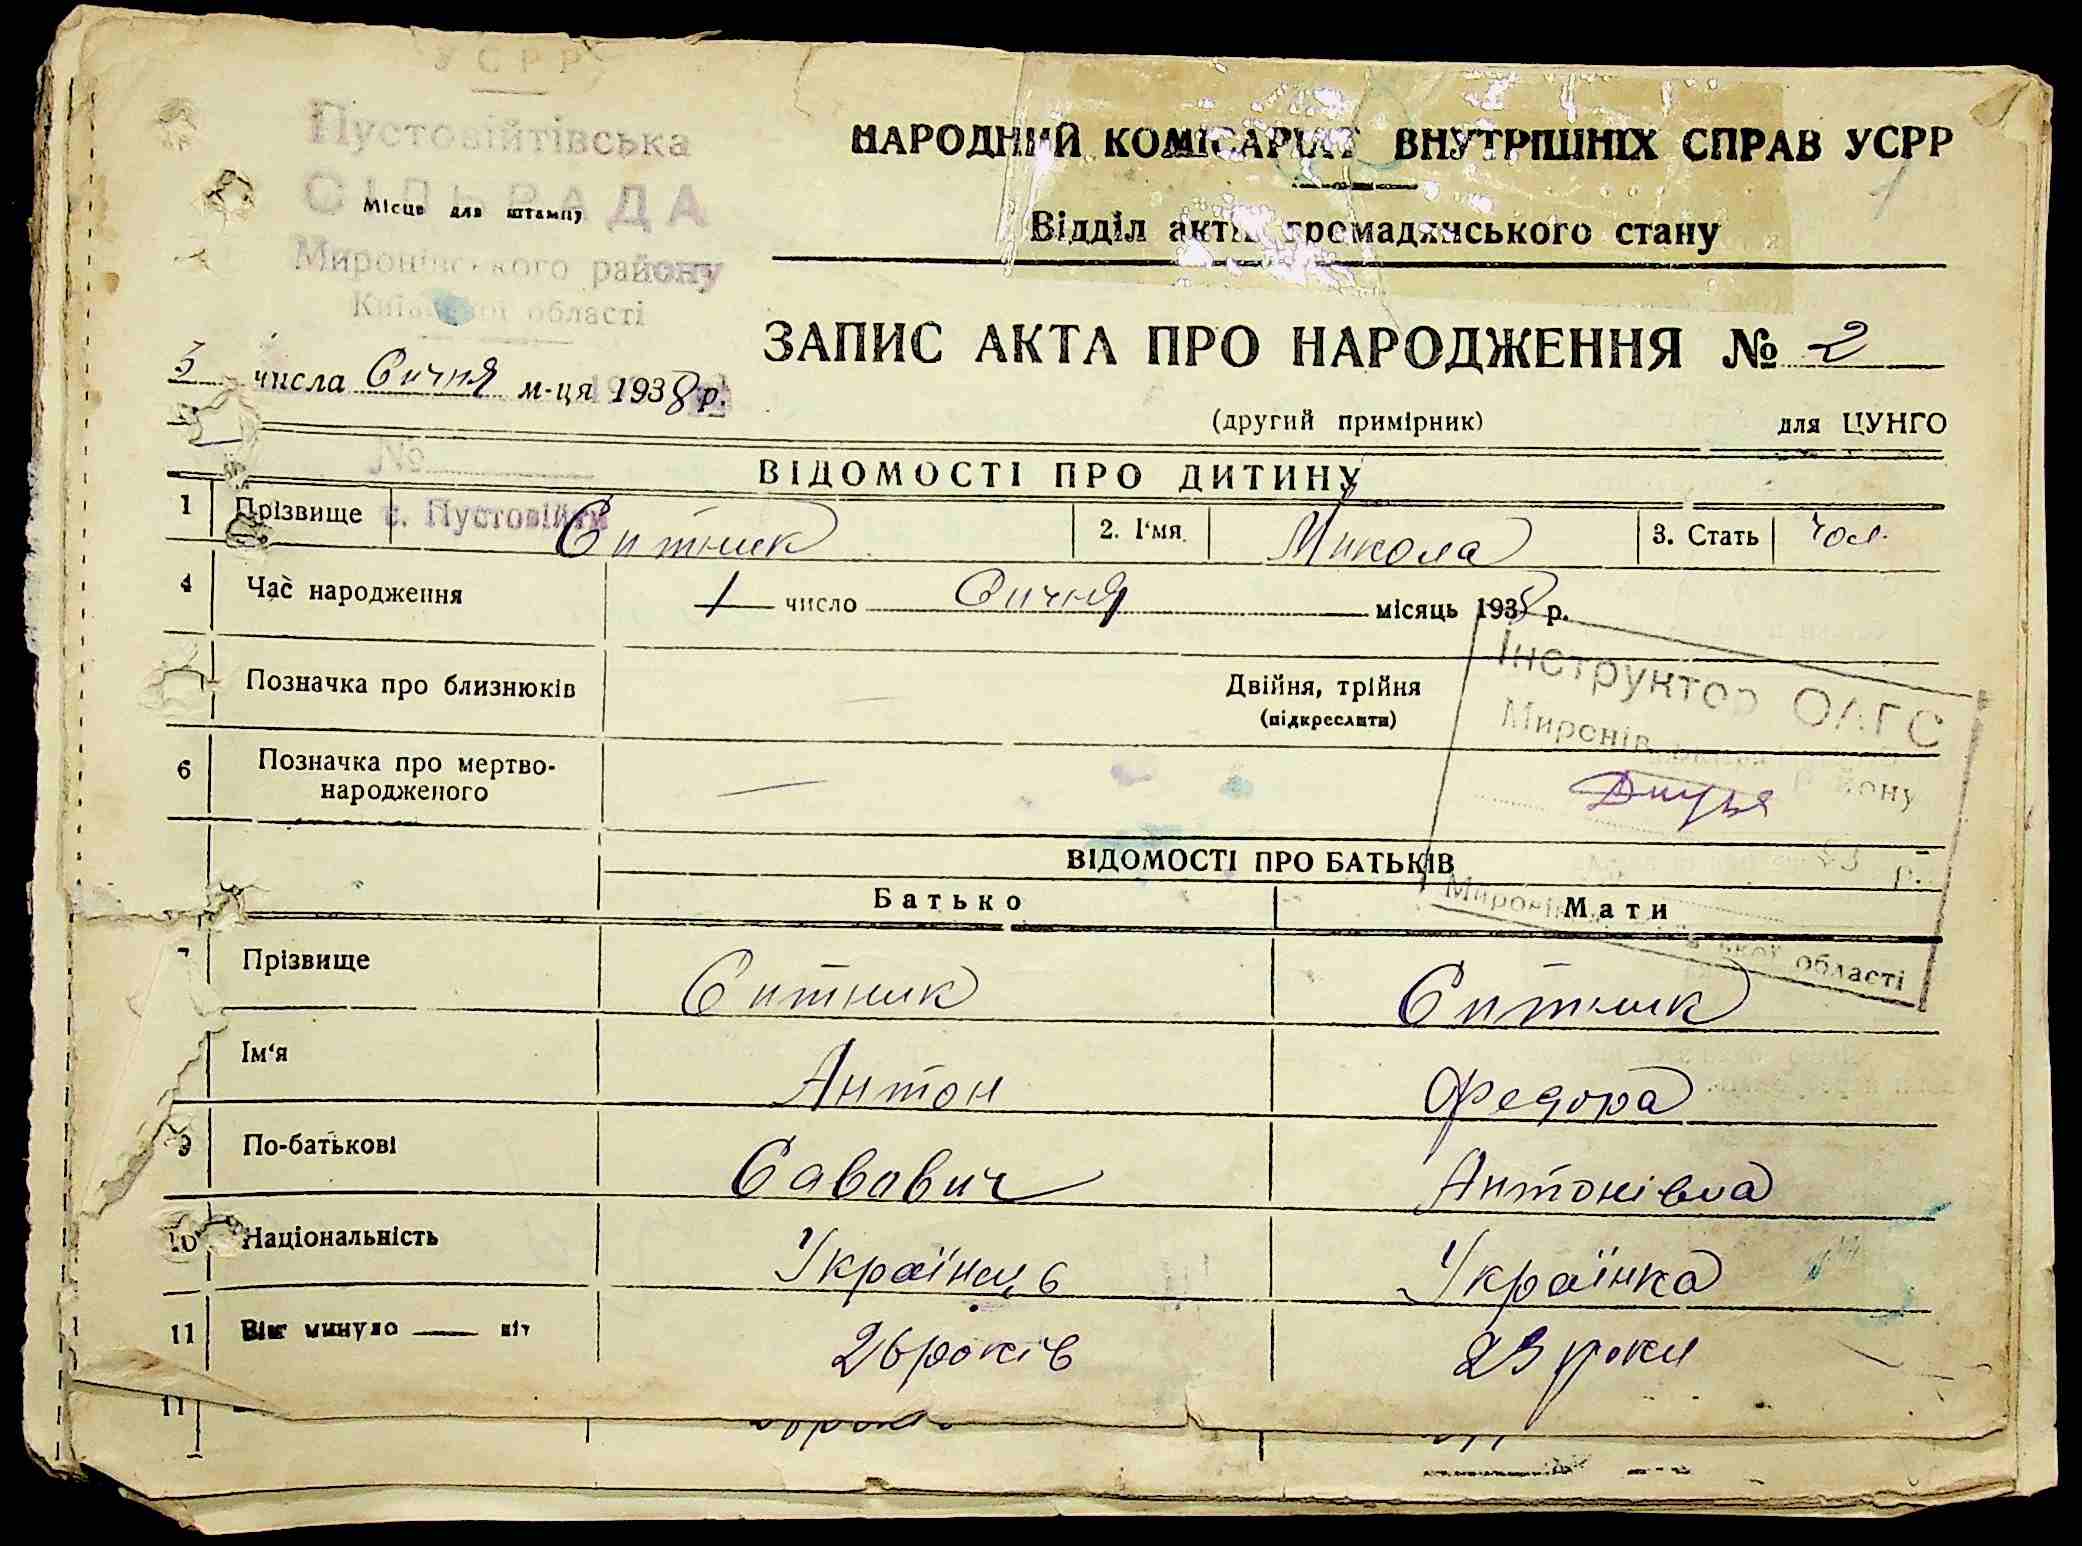 УСРР
Пустовійтівська
СІЛЬРАДА
Місце для штампу
Миронівського району
Київської області
НАРОДНИЙ КОМІСАРІАТ ВНУТРІШНІХ СПРАВ УСРР
1
Відділ актів громадянського стану
ЗАПИС АКТА ПРО НАРОДЖЕННЯ № 2
3 числа Січня м-ця 1938 р.
(другий примірник) для ЦУНГО
№
ВІДОМОСТІ ПРО ДИТИНУ
с. Пустовійти
1 Прізвище Ситник 2. І'мя Микола 3. Стать чол.
4 Час народження 1 число Січня місяць 1938 р.
Інструктор ОАГС
Позначка про близнюків Двійня, трійня
(підкреслити)
Миронів
6 Позначка про мертво-
народженого
району
ВІДОМОСТІ ПРО БАТЬКІВ
р.
Батько Мати
області
7 Прізвище Ситник Ситник
Ім'я Антон Федора
9 По-батькові Савович Антонівна
10 Національність Українець Українка
11 Вік минуло літ 26 років 23 роки
11